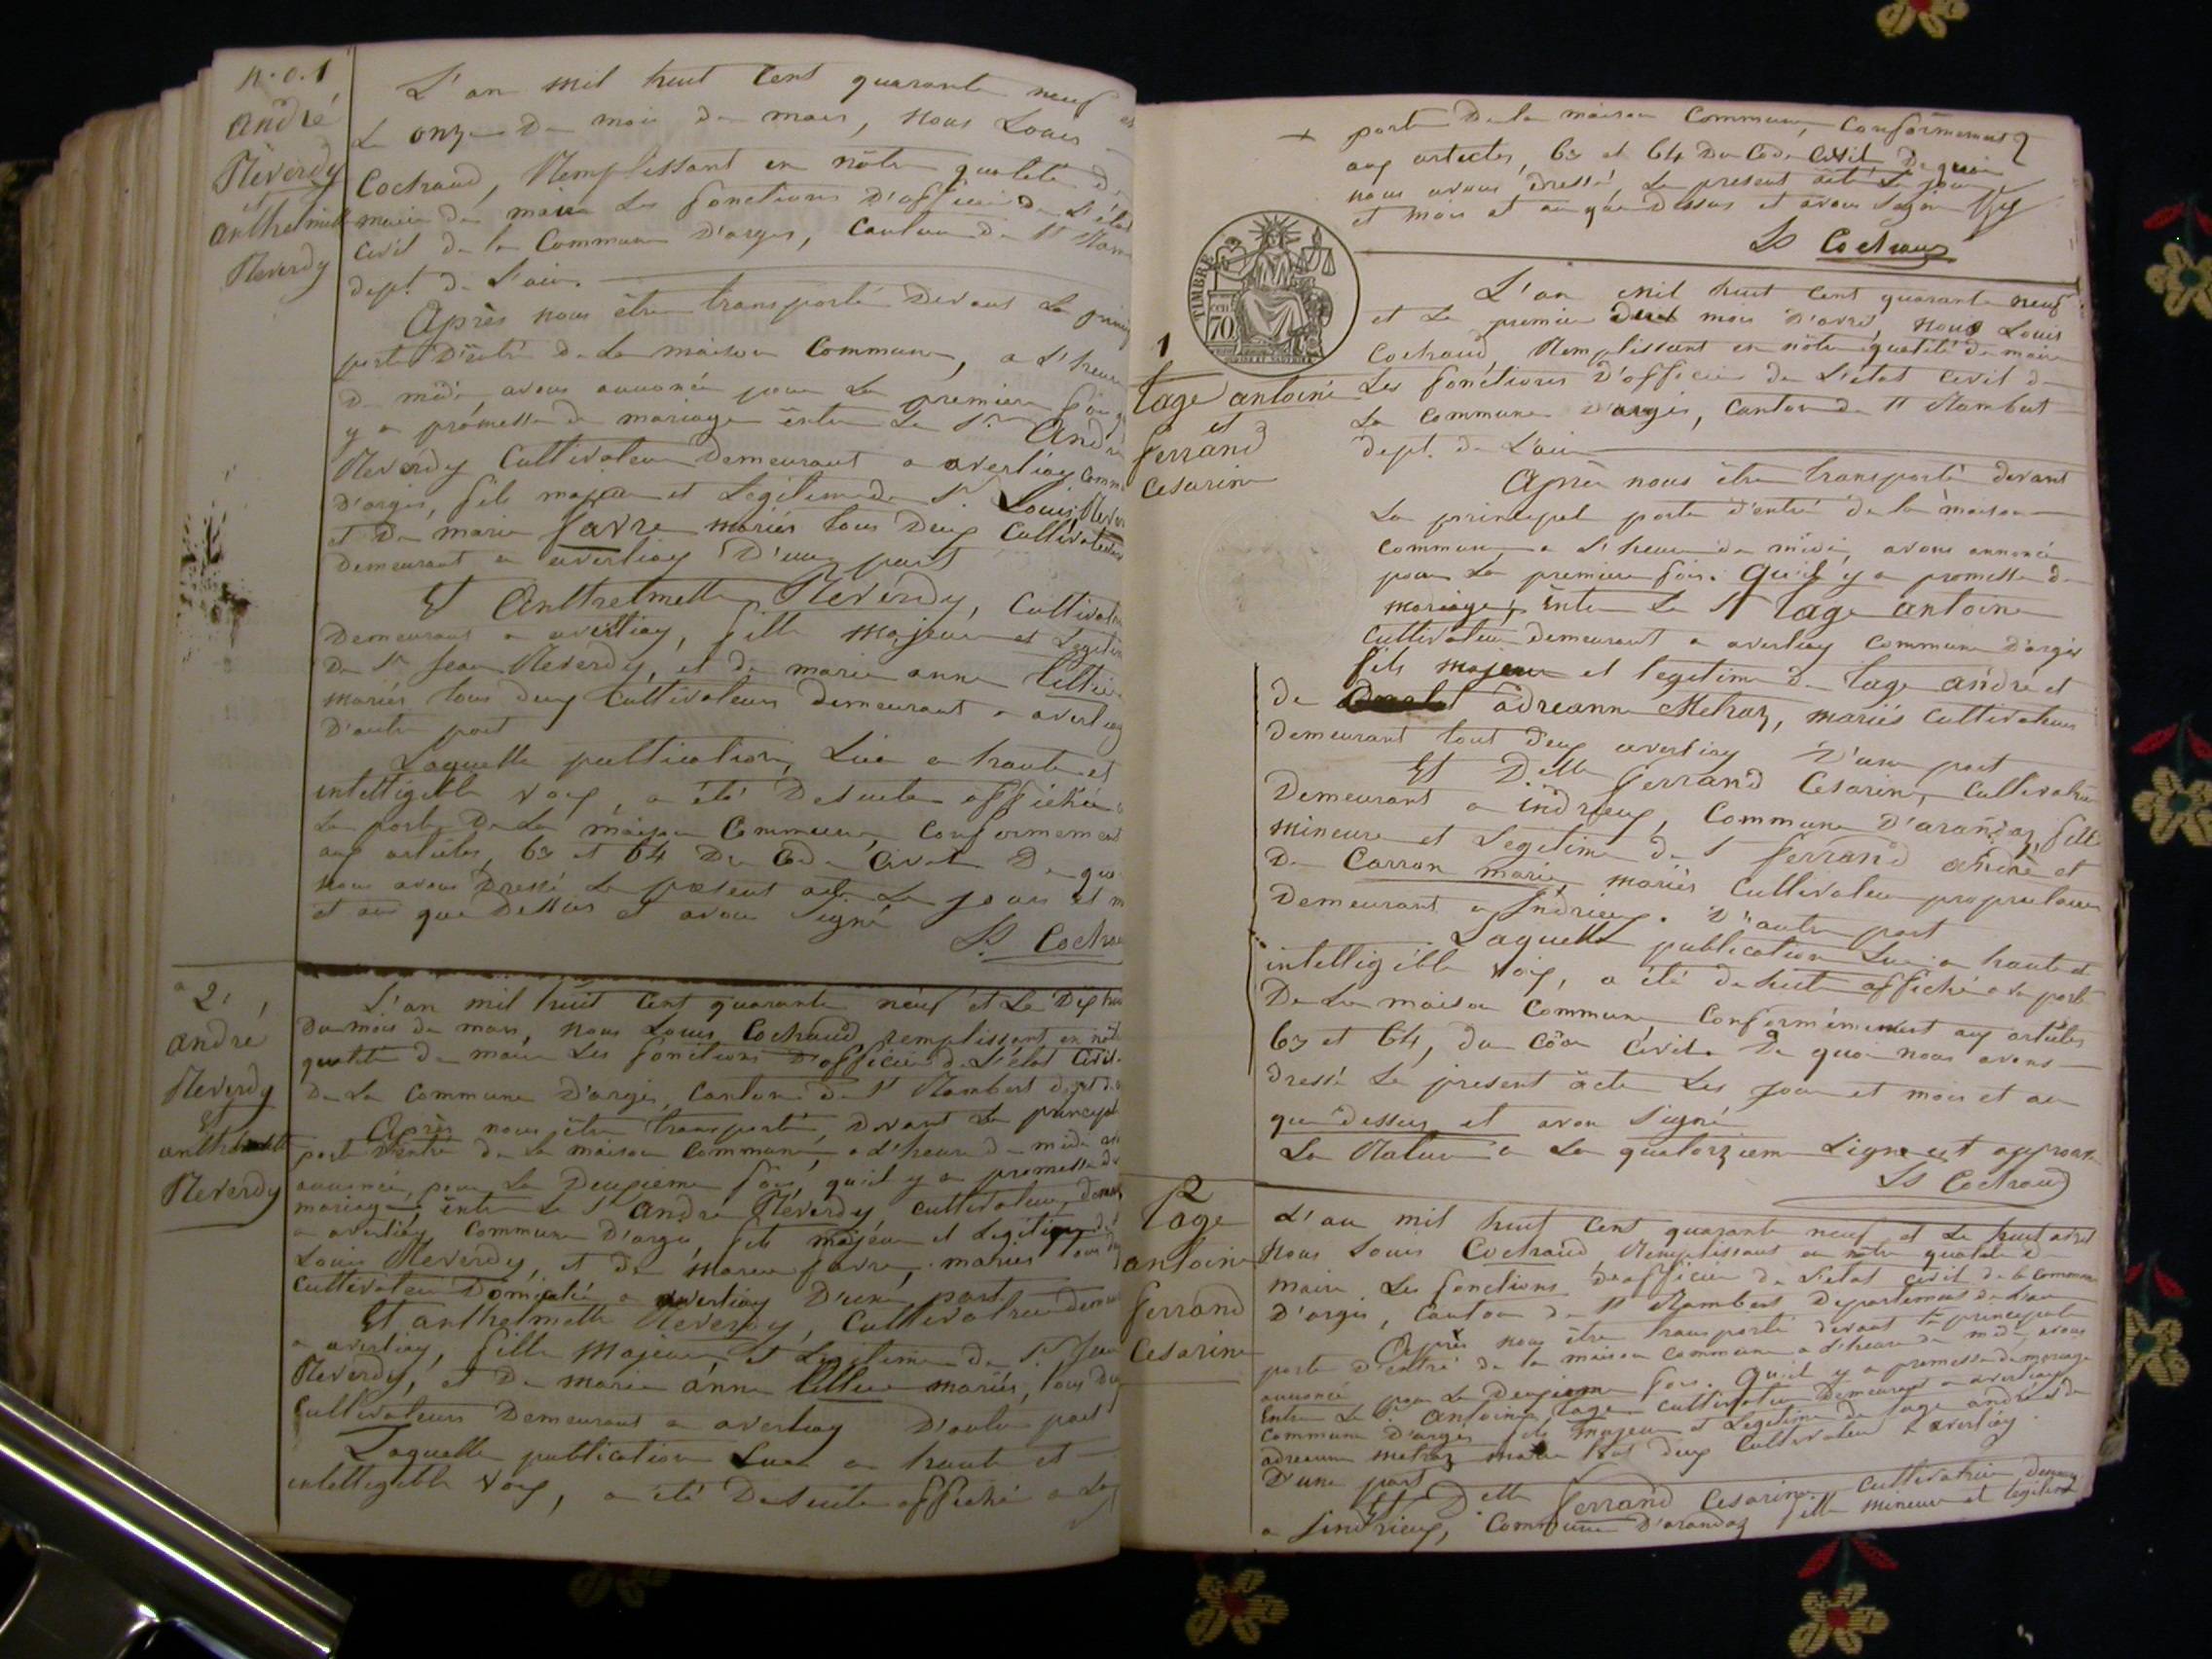 N.o.1
André
Réverdy
et
anthelmette
Reverdy
L'an mil huit Cent quarante neuf et
Le onze De moi de mars, nous Louis
Cochraud, Remplissant en nôtre qualité de
maire Les fonctions D'officier de L'état
civil de la Commune D'argis, Canton de St Ram
dept. de L'ain.
Après nous être transporté Devant La princip
porte D'entré de La maison Commune, a L'heure
De midi, avons annoncée pour La première fois
y a prômesse de mariage entre Le Sr. André
Reverdy Cultivateur Demeurant a averliay comm
D'argis, fils majeur et Légitime de Sr Louis Rever
et De marie favre mariés tous Deux Cultivateurs
Demeurant a averliay D'une part
Et Anthelmette Réverdy, Cultivatr
Demeurant a averliay, fille Majeure et Legitim
De Sr Jean Reverdy, et de marie anne
mariés tous deux Cultivateurs demeurant a averliay
D'autre part
Laquelle publication, Lue a haute et
intelligible voix, a été De suite affichée a
La porte De La maison Commune, Conformément
aux articles, 63 et 64 Du Code Civil De quo
nous avons Dressé Le présent acte Le jour et m
et an que Dessus et avons Signé
Ls. Cochrau
2
André
Reverdy
et
Reverdy
L'an mil huit Cent quarante neuf et Le Dix hui
Du mois de mars, nous Louis Cochraud remplissant en nôt
qualité de maire Les fonctions D'officier de L'état Civil
De La Commune D'argis, Canton de St Rambert dept de
Après nous être transporté Devant La principale
porte D'entré de La maison Commune, a L'heure de midi
annoncée, pour La Deuxieme fois, qu'il y a promesse de
mariage entre Le Sr André Réverdy cultivateur, deme
a averliay Commune D'argis, fils majeur et Légitime de
Louis Réverdy, et de Marie favre, mariés tous
Cultivateur Domicilié a averliay D'une part
Et anthelmette Reverdy, Cultivatrice demeu
a averliay, fille Majeure et Légitime De Sr. Jean
Reverdy, et De marie anne mariés, tous Deux
Cultivateurs Demeurant a averliay D'autre part
Laquelle publication Lue a haute et
intelligible voix, a été De suite affiché a La
+ porte De la maison Commune, Conformément
aux articles, 63 et 64 Du Code Civil De quoi
nous avons dressé, Le présent acte Le jour
et mois et an que Dessus et avons Signé
Ls Cochraud
TIMBRE
70
1
tage antoine
et
ferrand
Cesarine
L'an mil huit cent quarante neuf
et Le premier du mois D'avril, nous Louis
Cochraud, Remplissant en nôtre qualité de maire
Les fonctions D'officier de L'état Civil de
La Commune D'argis, Canton de St Rambert
dept. de L'ain
Après nous être transporté devant
La principale porte D'entré de la maison
Commune a L'heure de midi, avons annoncée
pour La première fois. Qu'il y a promesse de
mariage, Entre Le Sr tage antoine
Cultivateur demeurant a averliay Commune D'argis
fils majeur et legitime de tage andré et
de adreanne Metraz, mariés cultivateurs
Demeurant tout deux averliay D'une part
Et Delle ferrand Cesarine, Cultivatrice
Demeurant a indrieux, Commune D'arandaz, fille
mineure et Legitime de Sr ferrand andré et
De Carron marie mariés Cultivateur proprietaire
Demeurant a Indrieux. D'autre part
Laquelle publication Lue a haute et
intelligible voix, a été de suite affiché a La porte
De La maison Commune Conformémement aux articles
63 et 64, du Côde Civil. De quoi nous avons
dressé Le present acte Les jour et mois et an
que dessus et avon Signé
La Rature a La quatorzieme Ligne est approuvé
Ls Cochraud
2
tage
antoine
ferrand
Cesarine
L'an mil huit Cent quarante neuf et Le huit avril
Nous Louis Cochraud, Remplissant en nôtre qualité de
maire Les fonctions D'officier de L'état civil de la Commune
D'argis, Canton de St Rambert Département de L'ain
Après nous être transporté devant La principale
porte D'entré de la maison Commune a L'heure de midi avons
annoncée pour La Deuxieme fois. Qu'il y a promesse de mariage
Entre Le Sr. Antoine tage cultivateur Demeurant a averliay
Commune D'argis fils Majeur et Legitime de tage andré et de
adreanne metraz mariés tout deux Cultivateur a averliay.
D'une part
Et Delle ferrand Cesarine Cultivatrice, Demeur
a Jindrieux, Commune D'arandaz fille mineure et legitime